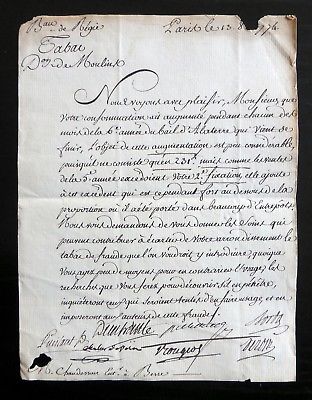 Bau de Régie
Paris le 13. 8bre 1776.
Tabac
Don de Moulins
Nous voyons avec plaisir, Monsieur, que
votre consommation ait augmenté pendant chacun des
mois de la 6e année du bail d'Alaterre qui vient de
finir, L'objet de cette augmentation est peu considérable
puisqu'il ne consiste qu'en 231# mais comme les ventes de
la 5e année excédoient votre 2e fixation, cela ajoute
à cet excédent qui est cependant fort au dessous de la
proportion où il a été porté dans beaucoup d'Entrepôts,
Nous vous demandons de vous donner les Soins qui
peuvent contribuer à écarter de votre arrondissement le
tabac de fraude que l'on voudroit y introduire, quoique
vous ayez peu de moyens pour en contrarier l'usage, les
recherches que vous ferez pour découvrir s'il en pénètre,
inquièteront ceux qui seroient tentés d'en faire usage et en
imposeront aux auteurs de cette fraude.
M. Chauderon Entr. à Bene